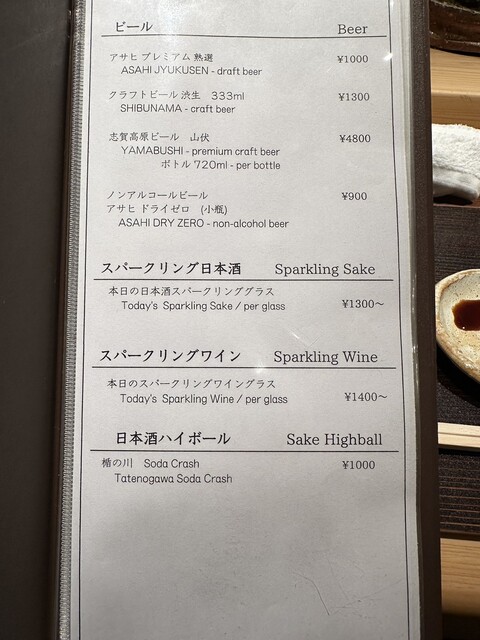 ビール Beer
アサヒ プレミアム 熟選 ¥1000
ASAHI JYUKUSEN - draft beer
クラフトビール 渋生 333ml ¥1300
SHIBUNAMA - craft beer
志賀高原ビール 山伏 ¥4800
YAMABUSHI - premium craft beer
ボトル 720ml - per bottle
ノンアルコールビール ¥900
アサヒ ドライゼロ (小瓶)
ASAHI DRY ZERO - non-alcohol beer
スパークリング日本酒 Sparkling Sake
本日の日本酒スパークリンググラス
Today's Sparkling Sake / per glass ¥1300〜
スパークリングワイン Sparkling Wine
本日のスパークリングワイングラス
Today's Sparkling Wine / per glass ¥1400〜
日本酒ハイボール Sake Highball
楯の川 Soda Crash ¥1000
Tatenogawa Soda Crash